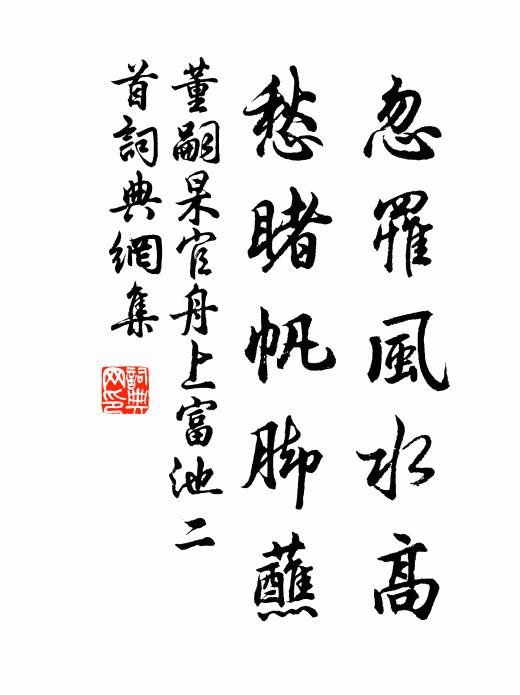 忽罹風水高
愁睹帆脚蘸
董嗣杲官舟上富池二
首詞典網集
詞典
网印